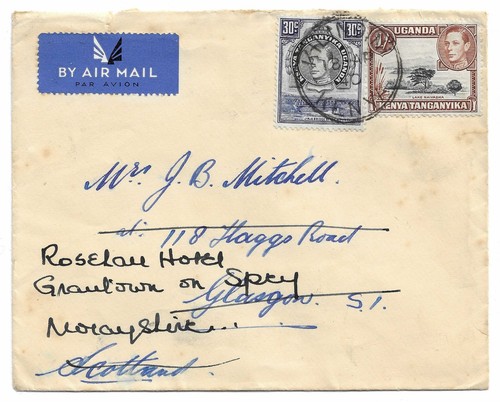 BY AIR MAIL
PAR AVION
30c 30c
KENYA TANGANYIKA UGANDA
UGANDA
1/-
LAKE NAIVASHA
KENYA TANGANYIKA
KENYA
Mrs J. B. Mitchell.
at: 118 Haggs Road
Rosehall Hotel
Grantown on Spey
Glasgow. S.1.
Morayshire
Scotland.